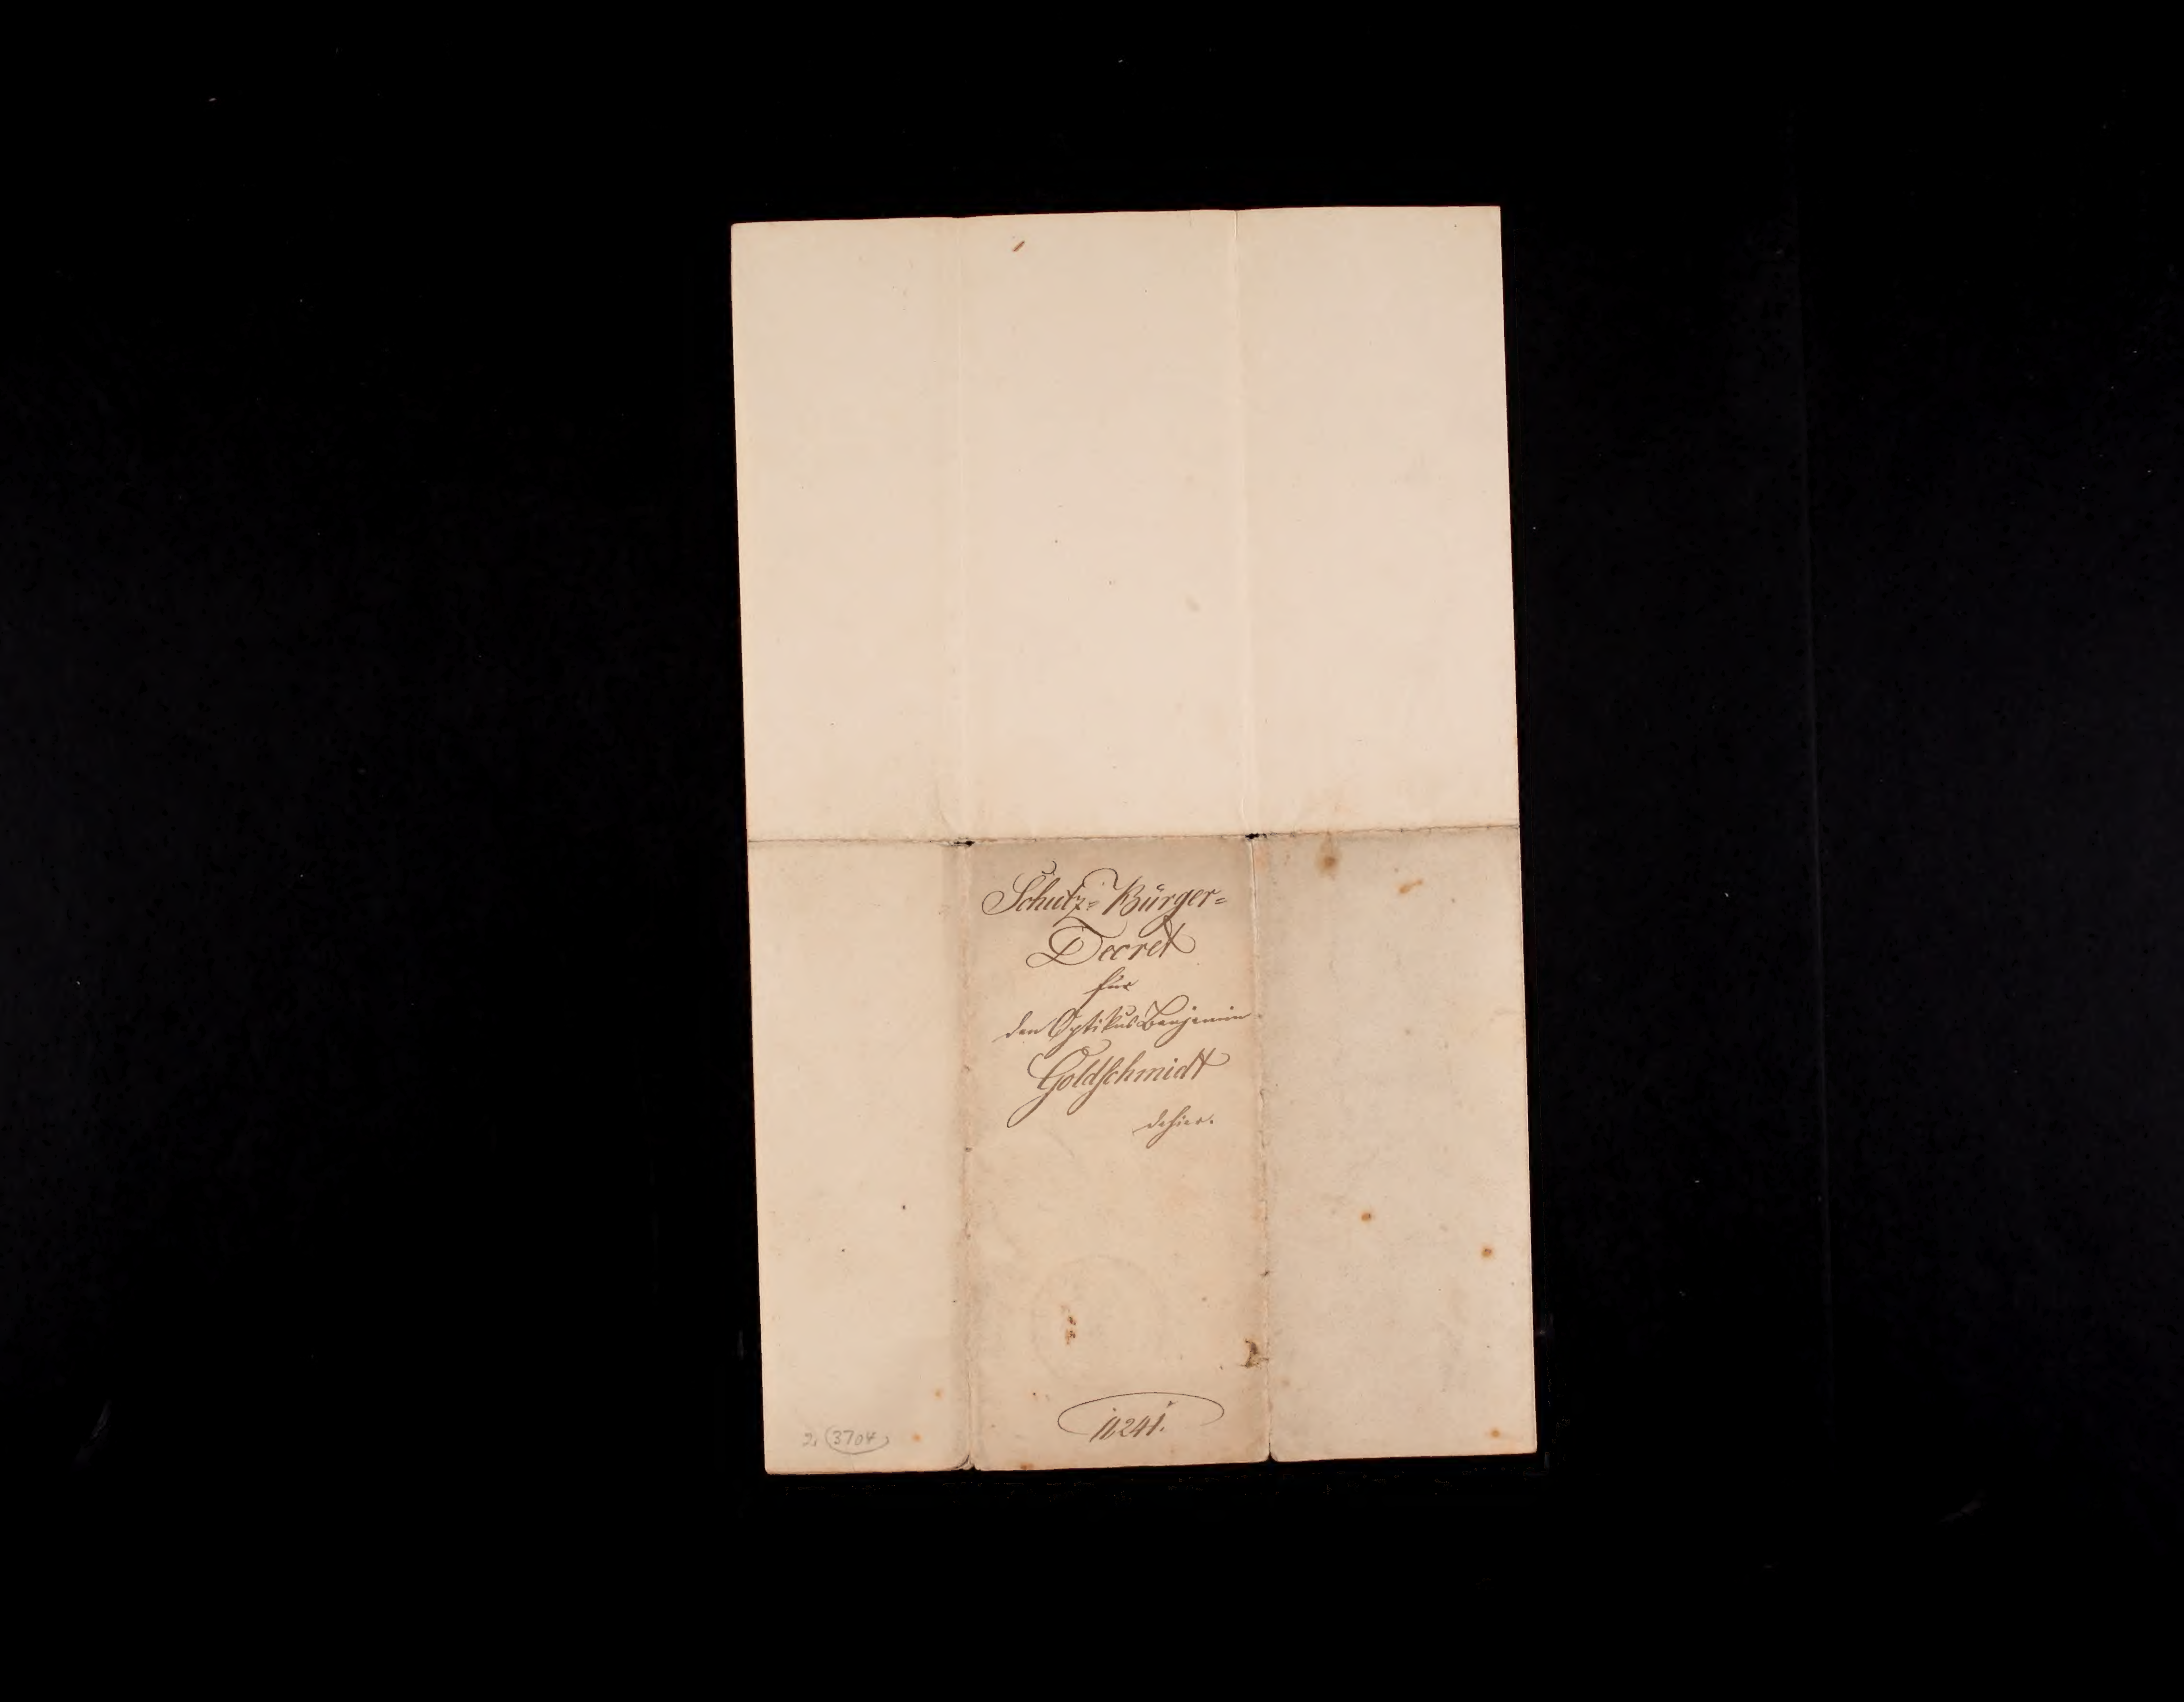 Schutz= Bürger=
Decret
für
den Optikus Benjamin
Goldschmidt
dahier.
11241.
2, 3704